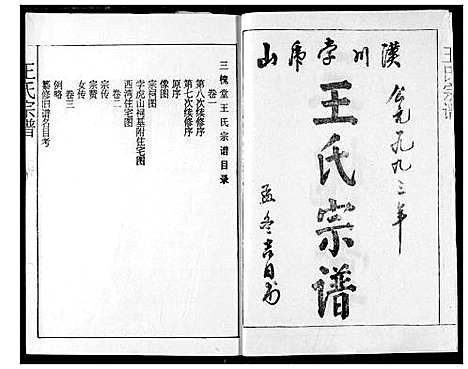 王氏宗谱
公元一九九三年
汉川孛虎山
王氏宗谱
孟冬吉日
三槐堂王氏宗谱目录
卷一
第八次续修序
第七次续修序
原序
像图
宗祠图
学虎山祠基附住宅图
西湾住宅图
卷二
宗传
宗赞
女传
卷三
例略
纂修旧谱名目考
王氏宗谱